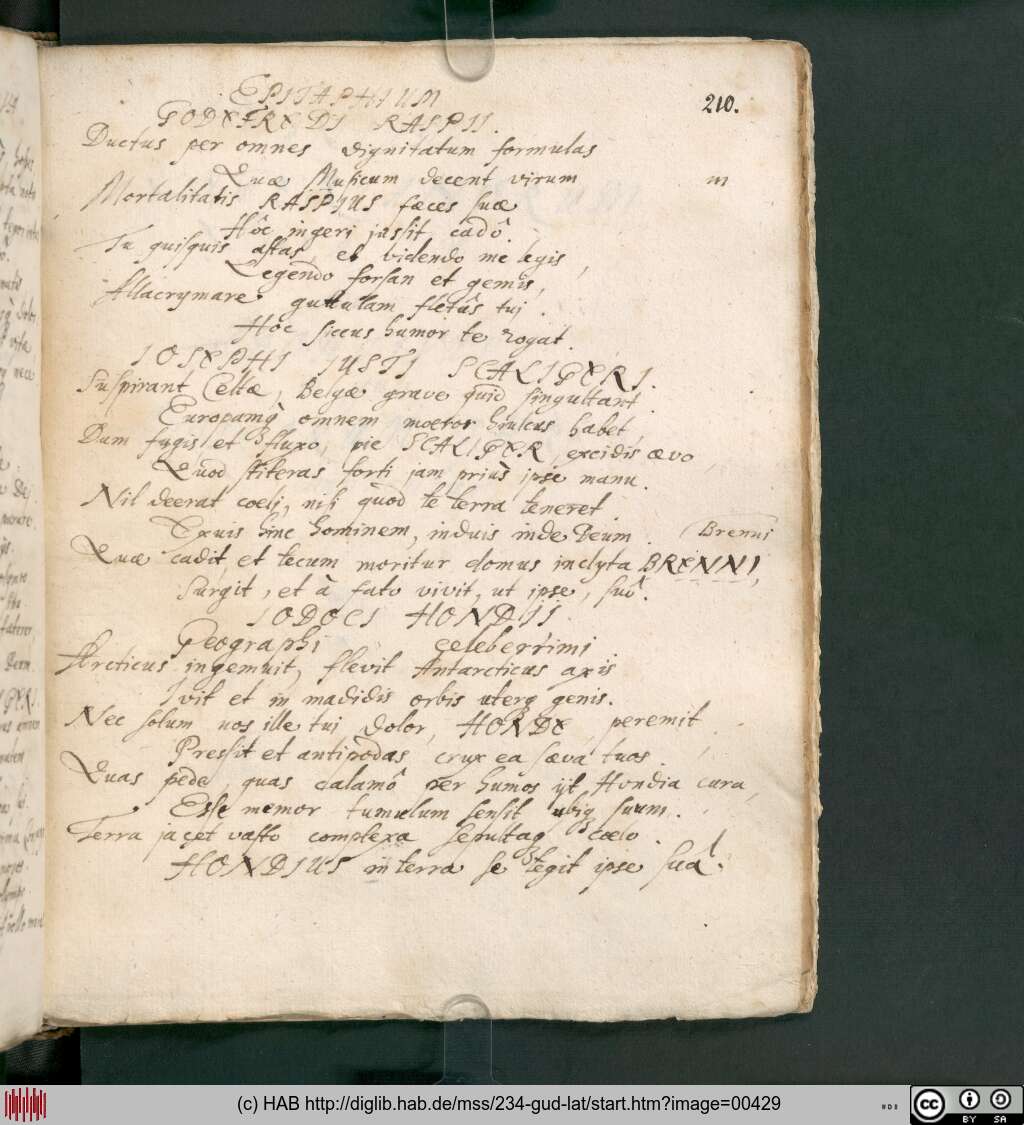 EPITAPHIUM
210.
GODEFREDI RASPII.
Ductus per omnes dignitatum formulas
Quæ Musicum decent virum
m
Mortalitatis RASPIUS fæces suæ
Hôc ingeri jussit cadô.
Tu quisquis astas, et videndo me legis,
Legendo forsan et gemis,
Allacrymare guttulam fletûs tui.
Hôc siccus humor te rogat.
IOSEPHI IUSTI SCALIGERI.
Suspirant Celtæ, Belgæ grave quid singultant
Europamq̀ omnem moeror hiulcus habet
Dum fugis et fluxo, pie SCALIGER, excidis ævo
Quod stiteras forti jam priùs ipse manu.
Nil deerat coeli, nisi quod te terra teneret
Exuis hinc hominem, induis inde Deum.
Brenni
Quæ cadit et tecum moritur domus inclyta BRENNI,
Surgit, et à fato vivit, ut ipse, suô.
IODOCI HONDII
Geographi celeberrimi
Arcticus ingemuit, flevit Antarcticus axis
Ivit et in madidis orbis uterq genis.
Nec solum nos ille tui dolor, HONDE, peremit
Pressit et antipodas crux ea sæva tuos.
Quas pede, quas calamô per humos ijt Hondia cura,
Esse memor tumulum sensit ubiq suum.
Terra jacet vasto complexa sepultaq coelo.
HONDIUS in terra se tegit ipse suâ.
(c) HAB http://diglib.hab.de/mss/234-gud-lat/start.htm?image=00429
cc BY SA